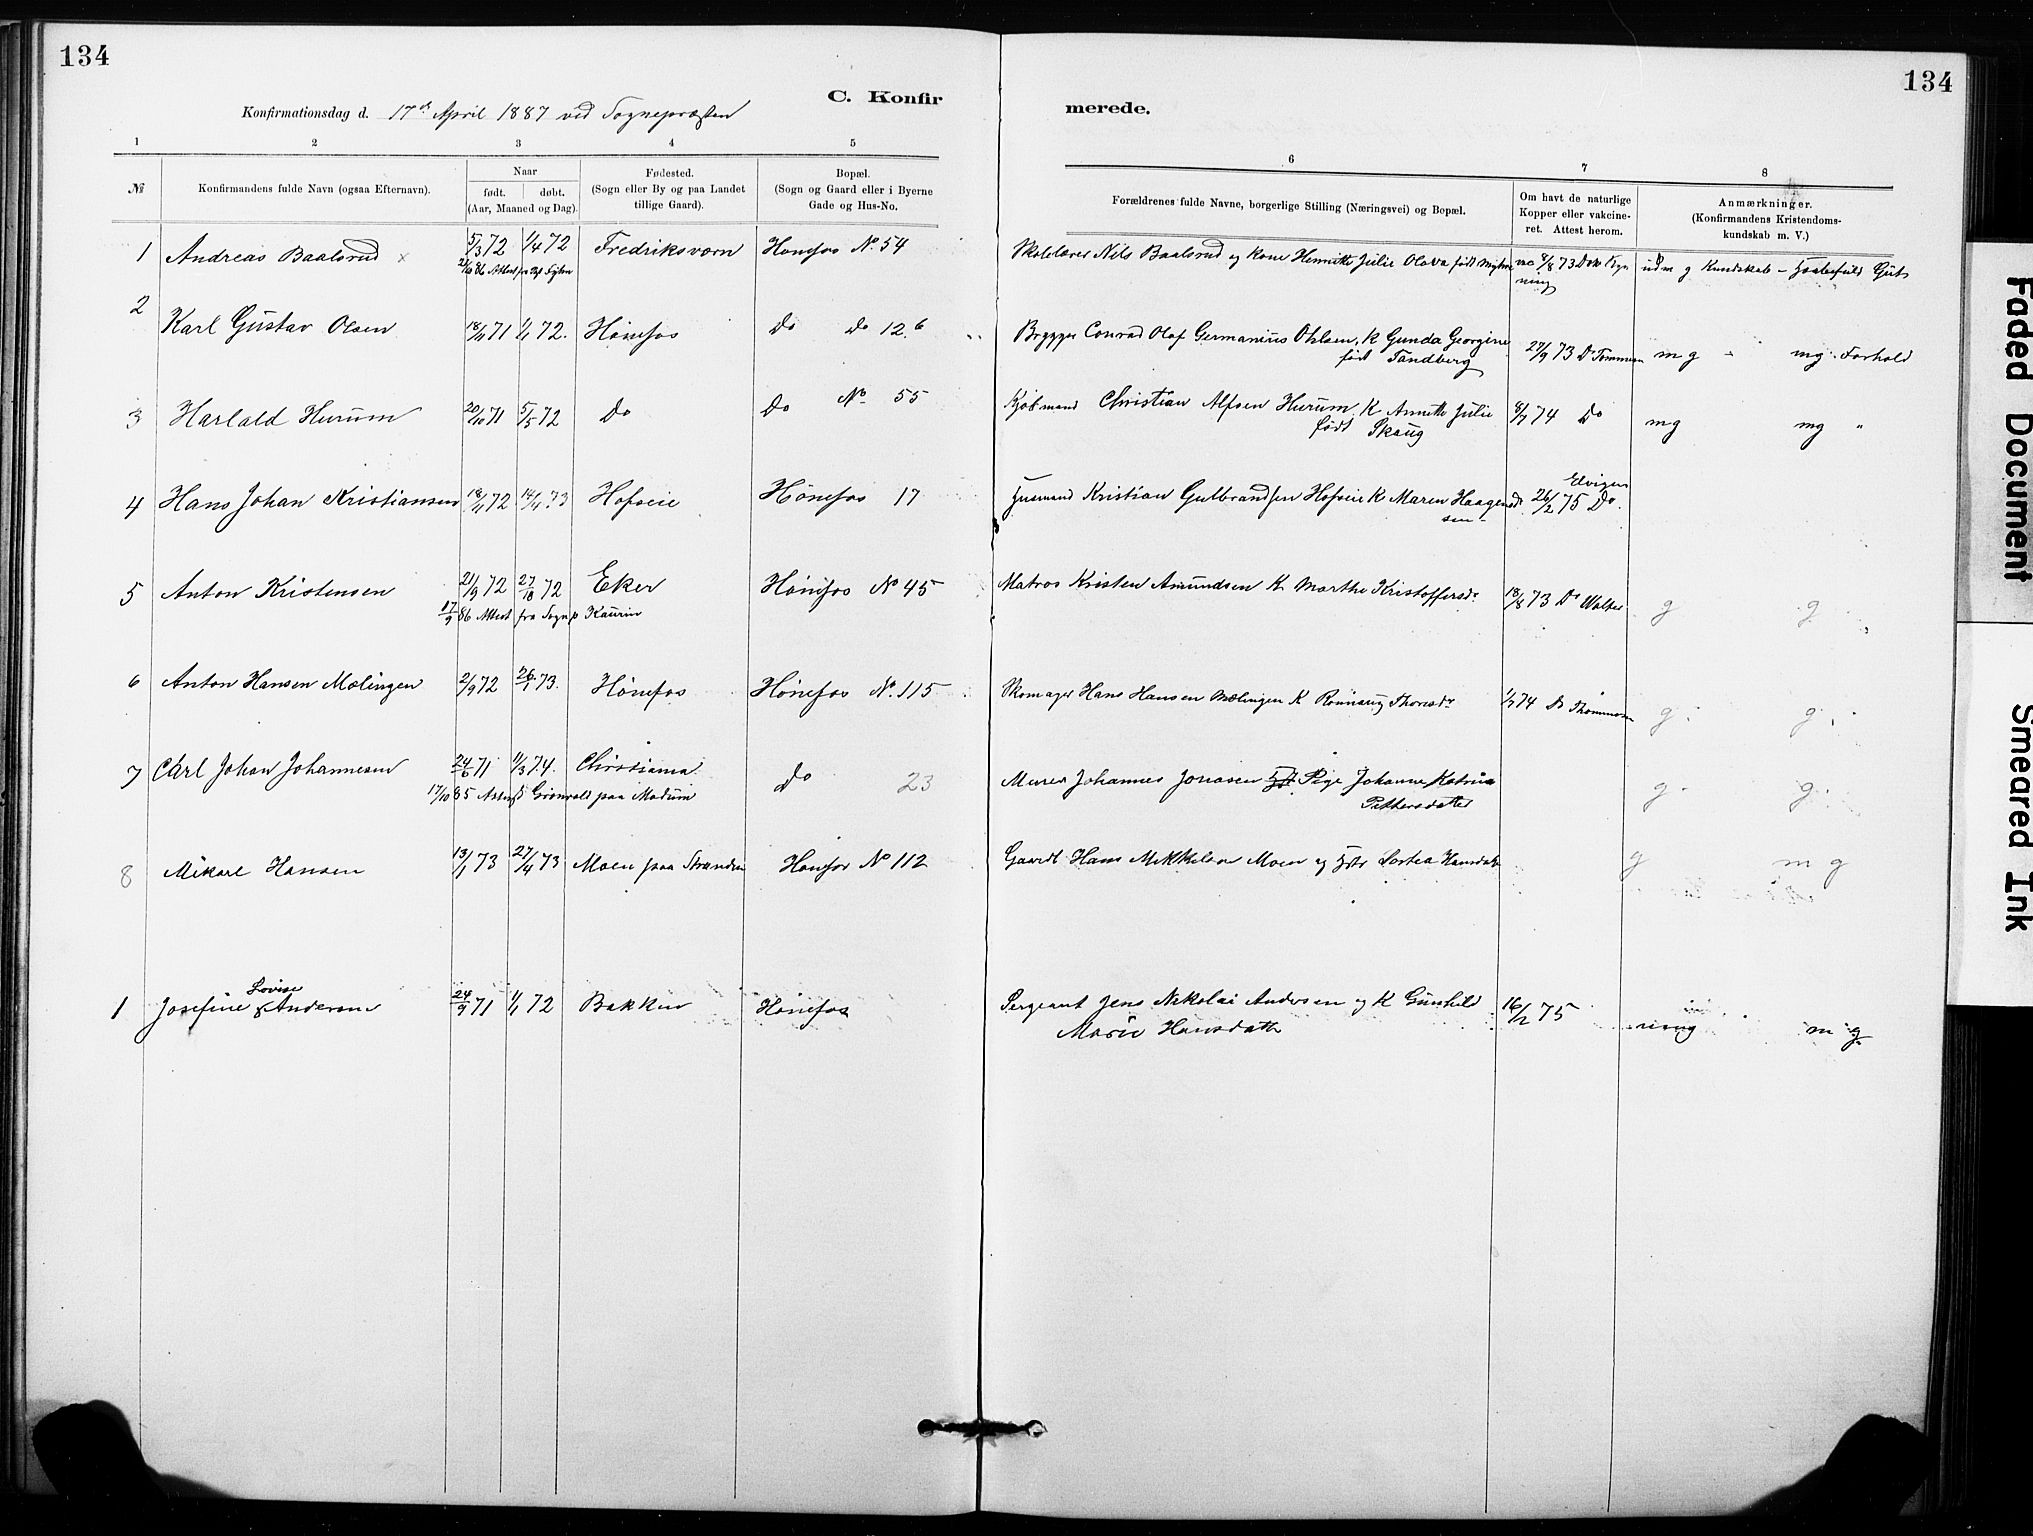 134
134
C. Konfir
merede.
Konfirmationsdag d. 17de April 1887 ved Sognepræsten
1 2 3 4 5
6 7 8
№ Konfirmandens fulde Navn (ogsaa Efternavn).
Naar
født. døbt.
(Aar, Maaned og Dag).
Fødested.
(Sogn eller By og paa Landet
tillige Gaard).
Bopæl.
(Sogn og Gaard eller i Byerne
Gade og Hus-No.
Forældrenes fulde Navne, borgerlige Stilling (Næringsvei) og Bopæl.
Om havt de naturlige
Kopper eller vakcine-
ret. Attest herom.
Anmærkninger.
(Konfirmandens Kristendoms-
kundskab m. V.)
1 Andreas Baalsrud x 5/3 72 1/4 72 Fredriksværn Hønefos No. 54 Skolelærer Nils Baalsrud og kone Henriette Julie Olava født 8/8 73 udm g Kundskab
86 Attest fr
2 Karl Gustav Olsen 18/11 71 1/1 72. Hønefos Do Do 12.6 Brygger Conrad Olaf Germanius Ohlsen, K Gunda Georgine 27/9 73 Dr Tommesen mg mg. Forhold
født Tandberg
3 Harlald Hurum 20/10 71 5/5 72 Do Do No 55 Kjøbmand Christian Alfsen Hurum K Annette Julie 8/7 74 Do mg mg "
født Skaug
4 Hans Johan Kristiansen 18/11 72 14/4 73 Hofseie Hönefos 17 Husmand Kristian Gulbrandsen Hofseie K Maren Haagensd 26/2 75 Do.
5 Anton Kristensen 21/9 72 27/10 72 Eker Hönefos No 45 Matros Kristen Amundsen K Marthe Kristoffersdr 18/8 73 Dr Walter g g
17/9 86 Attest fra Sognp Kaurin
6 Anton Hansen Mælingen 2/9 72 26/1 73. Hönefos Hönefos No. 115 Skomager Hans Hansen Mælingen K Rönnaug Thoresdr 1/7 74 Dr Thommesen g g
7 Carl Johan Johannesen 24/6 71 11/3 74. Christiania Do 23 Murer Johannes Jonasen Pige Johanne Katrine g g
17/10 85 Attest Grønvold paa Modum
Pettersdatter
8 Mikael Hansen 13/1 73 27/4 73 Moen paa Stranden Hønefos No 112 Gaardbr Hans Mikkelsen Moen og Hansdatr g m g
Lovise
1 Josefine Andersen 24/9 71 1/1 72 Bakken Hönefos Sergeant Jens Nikolai Andersen og K Gunhild 16/2 75 mg m g
Marie Hansdatter
Faded Document
Smeared Ink